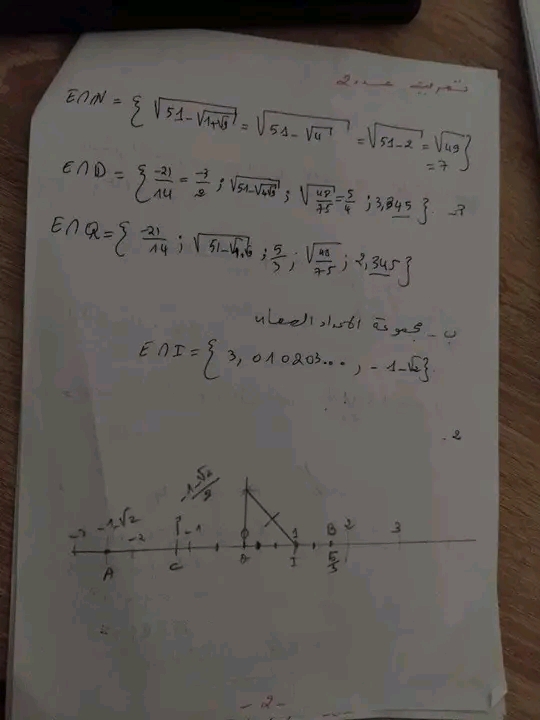 تمرين عدد 2
E∩N = { √(51-√(1+√9)) = √(51-√4) = √(51-2) = √49 = 7 }
E∩D = { -21/14 = -3/2 ; √(51-√(1+√9)) ; √(48/75) = 5/4 ; 3,345 }
E∩Q = { -21/14 ; √(51-√(1+√9)) ; 5/3 ; √(48/75) ; 2,345 }
ب - مجموعة الأعداد الصماء
E∩I = { 3,010203... , -1-√2 }
2.
-1-√2/2
-3 -1-√2 -2 -1 0 1 B 2 3
A C I 5/3
- 2 -